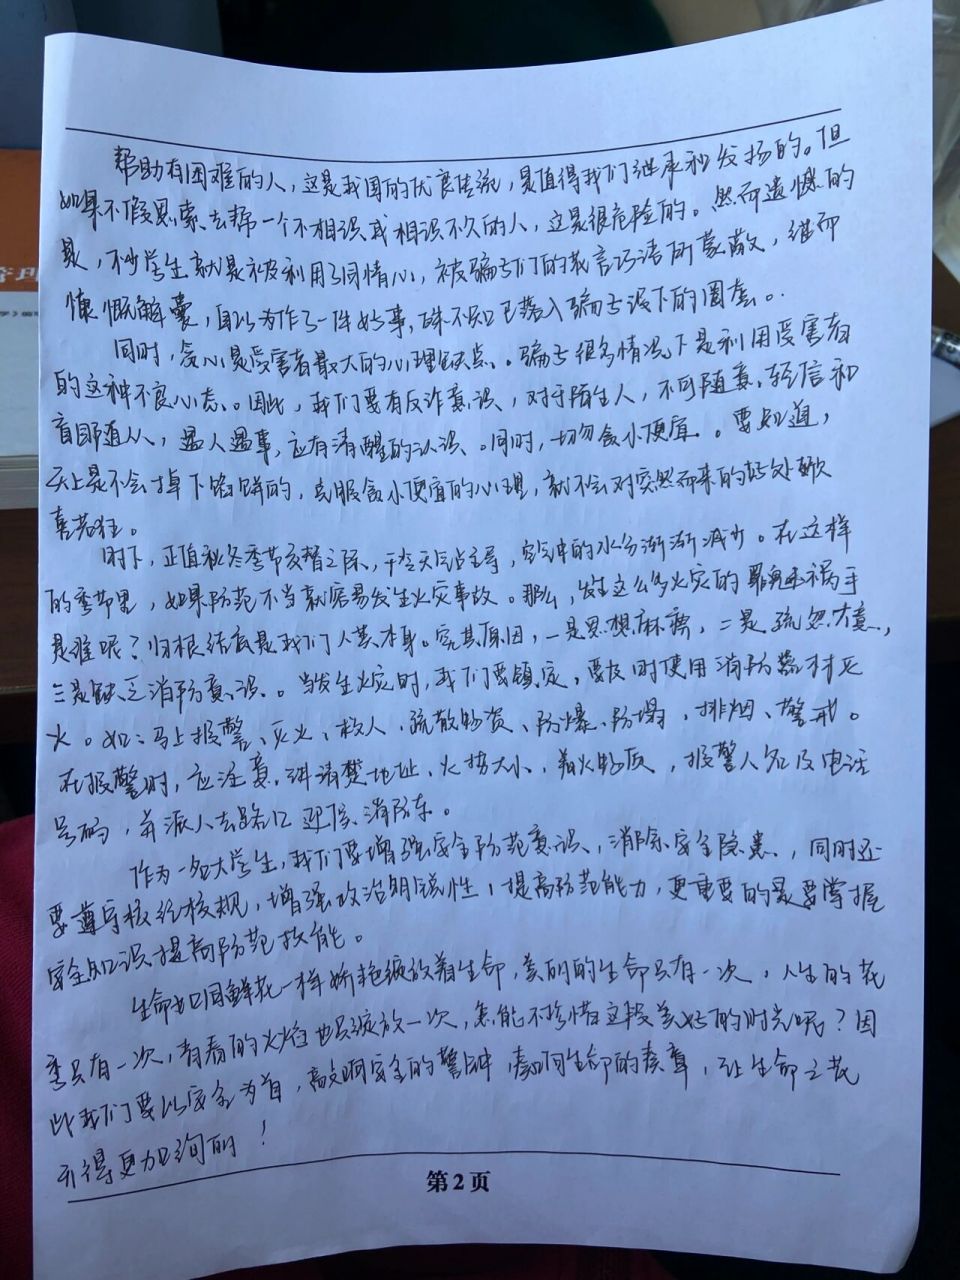 帮助有困难的人，这是我国的优良传统，是值得我们继承和发扬的。但
如果不假思索去帮一个不相识或相识不久的人，这是很危险的。然而遗憾的
是，不少学生就是被利用了同情心，被骗子们的花言巧语所蒙蔽，继而
慷慨解囊，自以为作了一件好事，殊不知已落入骗子设下的圈套。
同时，贪心是受害者最大的心理缺点。骗子很多情况下是利用受害者
的这种不良心态。因此，我们要有反诈意识，对于陌生人，不可随意轻信和
盲目随从，遇人遇事，应有清醒的认识。同时，切勿贪小便宜。要知道，
天上是不会掉下馅饼的，克服贪小便宜的心理，就不会对突然而来的好处欣
喜若狂。
时下，正值秋冬季节交替之际，干冷天气占主导，空气中的水分渐渐减少。在这样
的季节里，如果防范不当就容易发生火灾事故。那么，发生这么多火灾的罪魁祸手
是谁呢？归根结底是我们人类本身。究其原因，一是思想麻痹，二是疏忽大意，
三是缺乏消防意识。当发生火灾时，我们要镇定，要及时使用消防器材灭
火。如：马上报警、灭火、救人、疏散物资、防爆、防塌，排烟、警戒。
在报警时，应注意，讲清楚地址、火势大小，着火物质，报警人名及电话
号码，并派人去路口迎候消防车。
作为一名大学生，我们要增强安全防范意识，消除安全隐患，同时还
要遵守校纪校规，增强政治明锐性，提高防范能力，更重要的是要掌握
安全知识提高防范技能。
生命如同鲜花一样娇艳绽放着生命，美丽的生命只有一次，人生的花
季只有一次，青春的火焰也只绽放一次，怎能不珍惜这段美好的时光呢？因
此我们要以安全为首，敲响安全的警钟，奏响生命的凑章，让生命之花
开得更加绚丽！
第2页